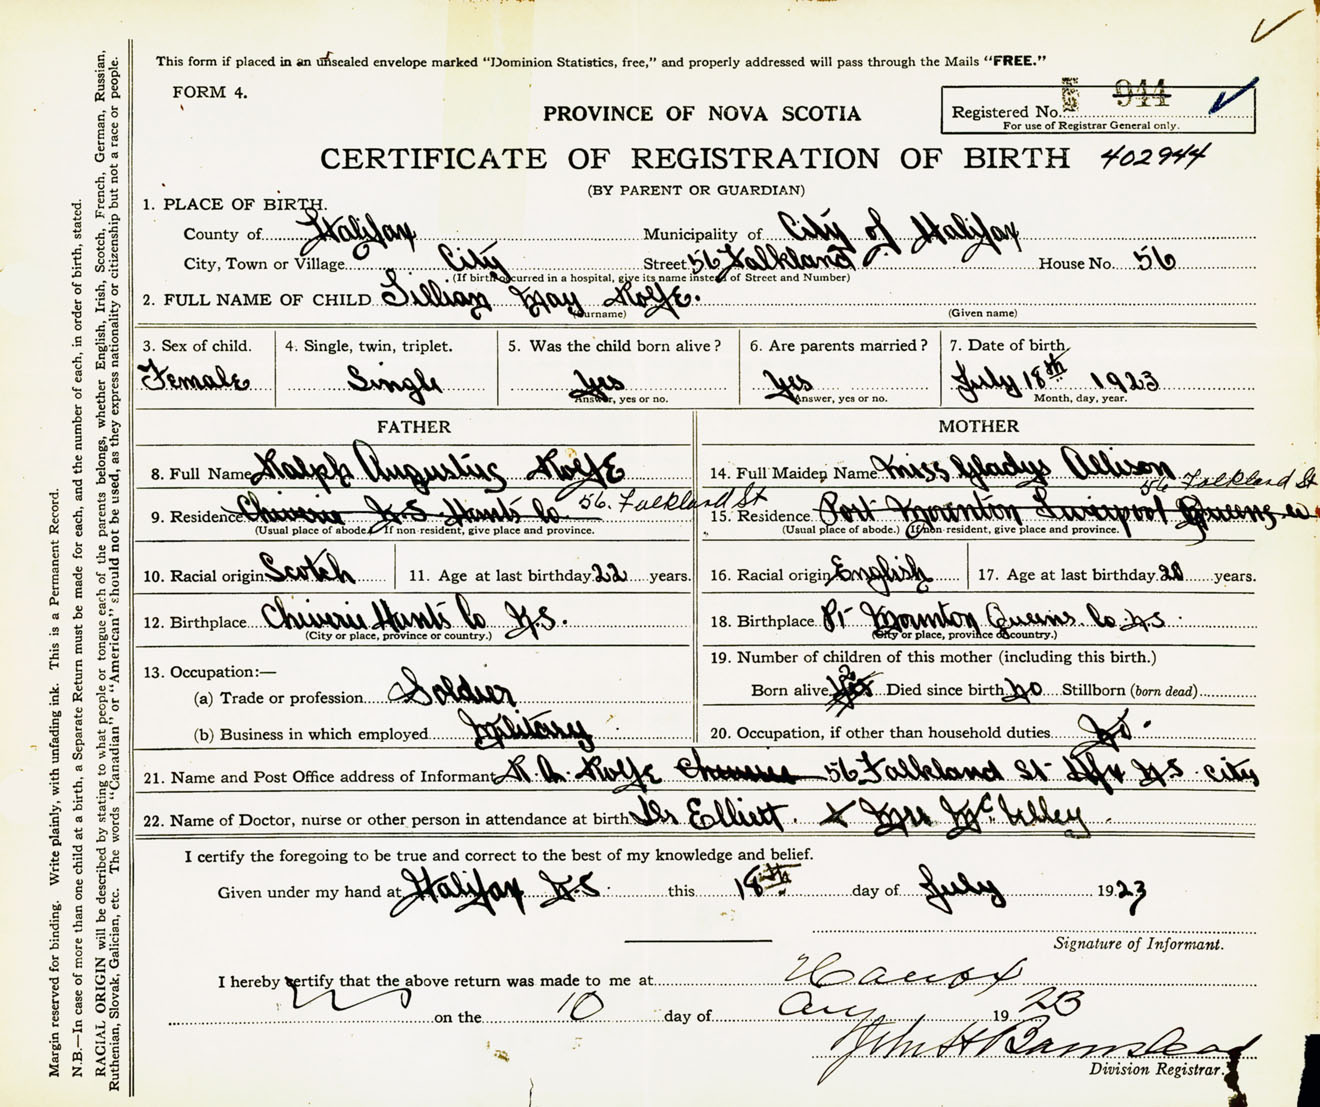 This form if placed in an unsealed envelope marked "Dominion Statistics, free," and properly addressed will pass through the Mails "FREE."
FORM 4.
Registered No. 944
For use of Registrar General only.
PROVINCE OF NOVA SCOTIA
CERTIFICATE OF REGISTRATION OF BIRTH 402944
(BY PARENT OR GUARDIAN)
1. PLACE OF BIRTH.
County of Halifax Municipality of City of Halifax
City, Town or Village City Street 56 Falkland House No. 56
(If birth occurred in a hospital, give its name instead of Street and Number)
2. FULL NAME OF CHILD Lillian May Rolfe.
(Surname) (Given name)
3. Sex of child. 4. Single, twin, triplet. 5. Was the child born alive? 6. Are parents married? 7. Date of birth.
Female Single Yes Yes July 18th 1923
Answer, yes or no. Answer, yes or no. Month, day, year.
FATHER MOTHER
8. Full Name Ralph Augustus Rolfe 14. Full Maiden Name Miss Gladys Allison
56. Falkland St 56 Falkland St
9. Residence Chiverie N.S Hants Co 15. Residence Port Mornton Liverpool Queens Co
(Usual place of abode.) If non-resident, give place and province. (Usual place of abode.) (If non-resident, give place and province.
10. Racial origin Scotch 11. Age at last birthday 22 years. 16. Racial origin English 17. Age at last birthday 20 years.
12. Birthplace Chiverie Hants Co N.S. 18. Birthplace Pt Mornton Queens Co N.S
(City or place, province or country.) (City or place, province or country.)
19. Number of children of this mother (including this birth.)
13. Occupation:—
(a) Trade or profession Soldier Born alive 2 Died since birth No Stillborn (born dead)
(b) Business in which employed Military 20. Occupation, if other than household duties No.
21. Name and Post Office address of Informant R. A. Rolfe 56 Falkland St Hfx N.S. City
22. Name of Doctor, nurse or other person in attendance at birth Dr Elliott. & Mrs
I certify the foregoing to be true and correct to the best of my knowledge and belief.
Given under my hand at Halifax N.S this 18th day of July 1923
Signature of Informant.
I hereby certify that the above return was made to me at Halifax
N S on the 10 day of Aug 1923
John H Barnstead
Division Registrar.
Margin reserved for binding. Write plainly, with unfading ink. This is a Permanent Record.
N.B.—In case of more than one child at a birth, a Separate Return must be made for each, and the number of each, in order of birth, stated.
RACIAL ORIGIN will be described by stating to what people or tongue each of the parents belongs, whether English, Irish, Scotch, French, German, Russian,
Ruthenian, Slovak, Galician, etc. The words "Canadian" or "American" should not be used, as they express nationality or citizenship but not a race or people.